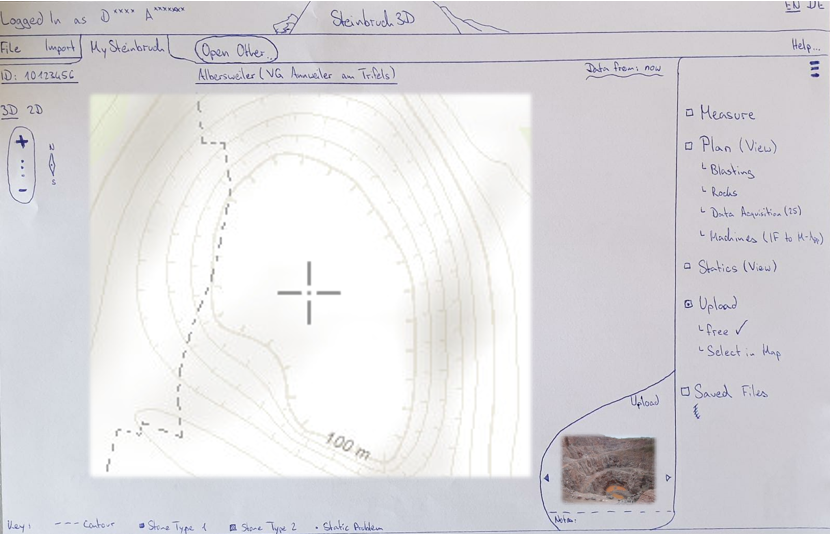 Logged In as D**** A******
Steinbruch 3D
EN DE
File Import My Steinbruch Open Other...
Help...
ID: 10123456
Albersweiler (VG Annweiler am Trifels)
Data from: now
3D 2D
+
-
N
S
Measure
Plan (View)
Blasting
Rocks
Data Acquisition (2S)
Machines (IF to
Statics (View)
Upload
free ✓
Select in Map
Saved Files
100 m
Upload
Notes:
Key: Contour Stone Type 1 Stone Type 2 Static Problem